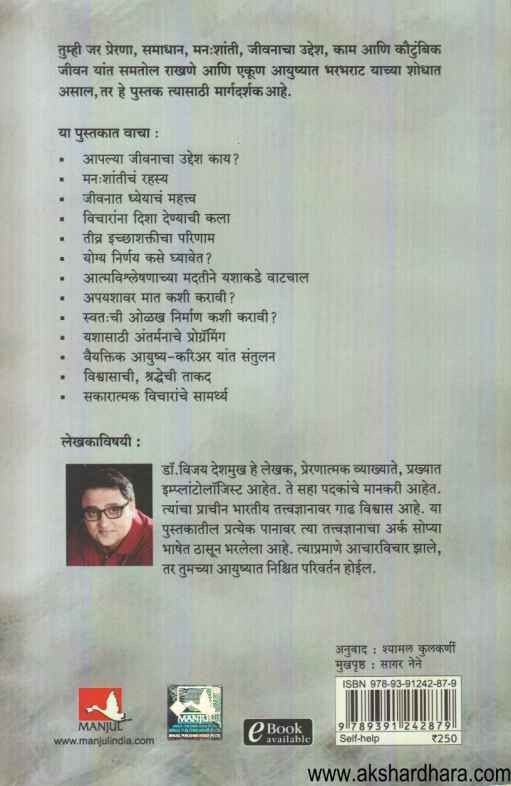 तुम्ही जर प्रेरणा, समाधान, मनःशांती, जीवनाचा उद्देश, काम आणि कौटुंबिक
जीवन यांत समतोल राखणे आणि एकूण आयुष्यात भरभराट याच्या शोधात
असाल, तर हे पुस्तक त्यासाठी मार्गदर्शक आहे.
या पुस्तकात वाचा :
▪ आपल्या जीवनाचा उद्देश काय?
▪ मनःशांतीचं रहस्य
▪ जीवनात ध्येयाचं महत्त्व
▪ विचारांना दिशा देण्याची कला
▪ तीव्र इच्छाशक्तीचा परिणाम
▪ योग्य निर्णय कसे घ्यावेत?
▪ आत्मविश्लेषणाच्या मदतीने यशाकडे वाटचाल
▪ अपयशावर मात कशी करावी?
▪ स्वतःची ओळख निर्माण कशी करावी?
▪ यशासाठी अंतर्मनाचे प्रोग्रॅमिंग
▪ वैयक्तिक आयुष्य-करिअर यांत संतुलन
▪ विश्वासाची, श्रद्धेची ताकद
▪ सकारात्मक विचारांचे सामर्थ्य
लेखकाविषयी :
डॉ.विजय देशमुख हे लेखक, प्रेरणात्मक व्याख्याते, प्रख्यात
इम्प्लांटोलॉजिस्ट आहेत. ते सहा पदकांचे मानकरी आहेत.
त्यांचा प्राचीन भारतीय तत्त्वज्ञानावर गाढ विश्वास आहे. या
पुस्तकातील प्रत्येक पानावर त्या तत्त्वज्ञानाचा अर्क सोप्या
भाषेत ठासून भरलेला आहे. त्याप्रमाणे आचारविचार झाले,
तर तुमच्या आयुष्यात निश्चित परिवर्तन होईल.
अनुवाद : श्यामल कुलकर्णी
मुखपृष्ठ : सागर नेने
ISBN 978-93-91242-87-9
9 789391 242879
Self-help ₹250
MANJUL
www.manjulindia.com
MANJUL
eBook
available
www.akshardhara.com